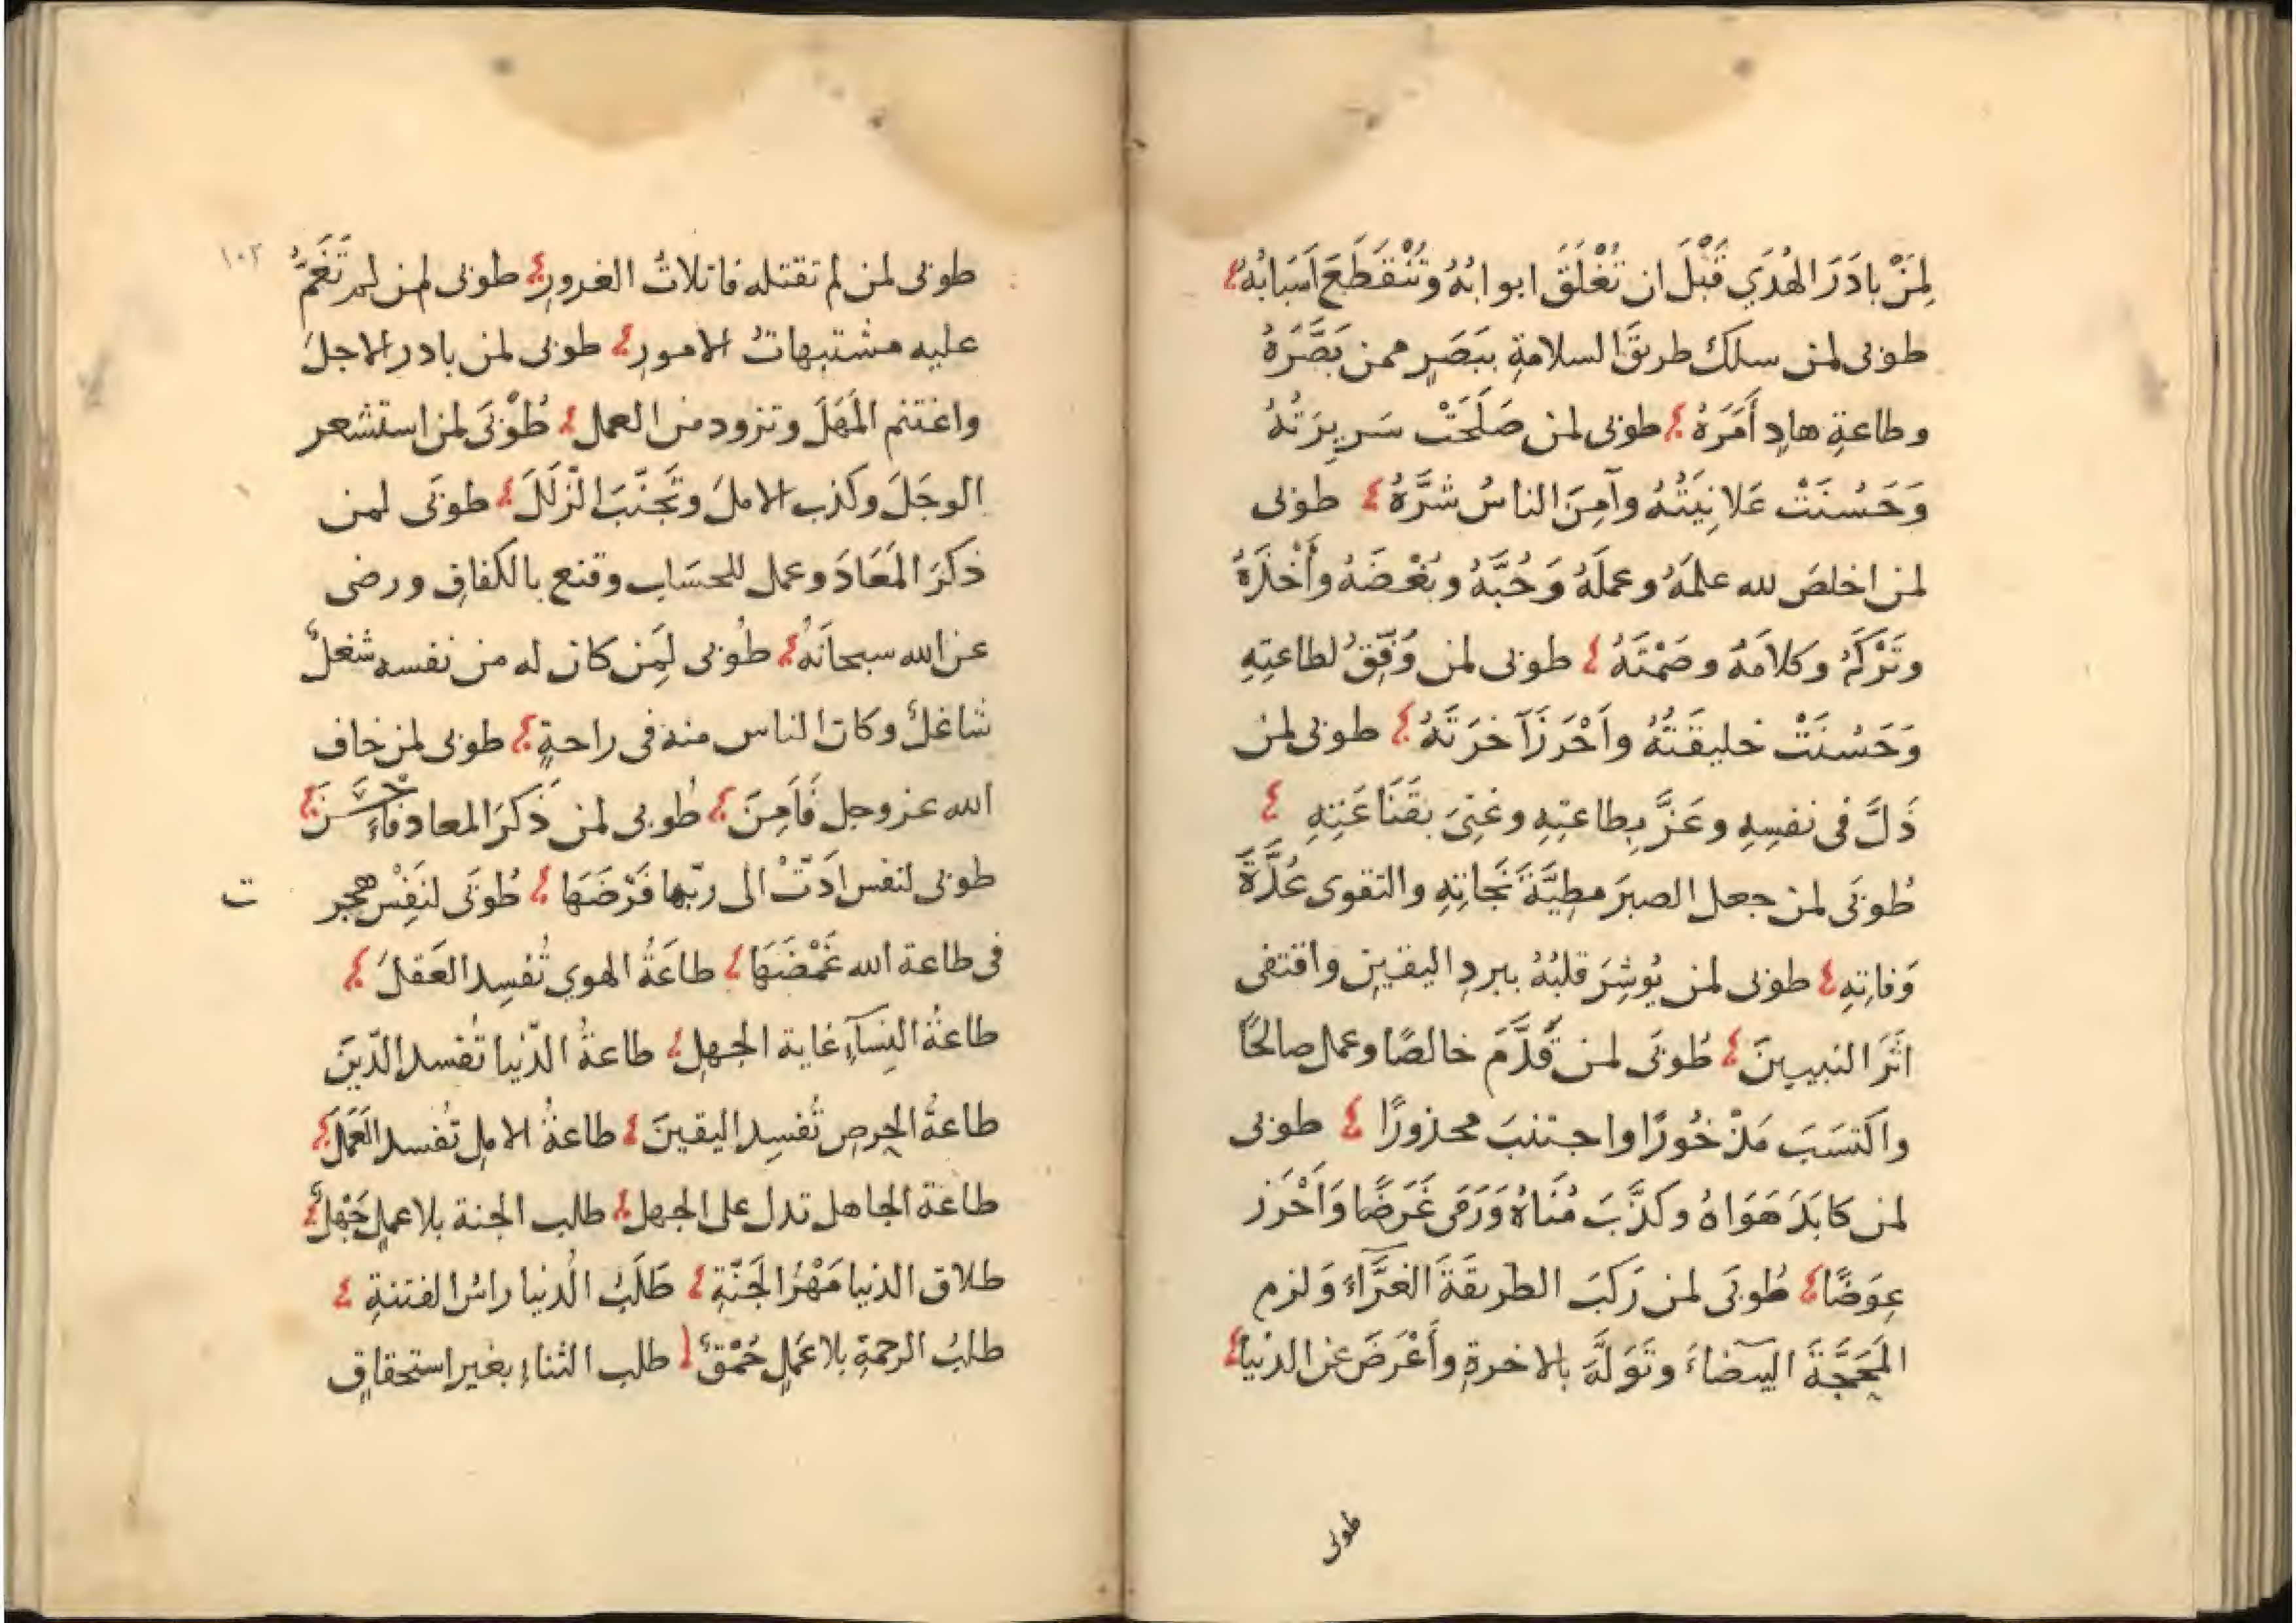 لِمَنْ بادَرَ الهُدَي قَبْلَ ان تُغْلَقَ ابوابُهُ وتَنْقَطَعَ اَسَبابُهُ
طوبى لمن سلك طريقَ السلامةِ ببَصَرٍ ممن بَصَّرَهُ
وطاعةِ هادٍ أَمَرَهُ طوبى لمن صَلَحَتْ سَرِيرَتُهُ
وَحَسُنَتْ عَلانِيَتُهُ وآمِنَ الناسُ شرَّهُ طوبى
لمن اخلصَ لله علمَهُ وعملَهُ وَحُبَّهُ وبُغْضَهُ وأَخْذَهُ
وتَرْكَهُ وكلامَهُ وصَمْتَهُ طوبى لمن وُفِّقَ لطاعتِهِ
وَحَسُنَتْ خليقَتُهُ واَحْرَزَ آخرَتَهُ طوبى لمن
ذَلَّ فى نفسِهِ وعَزَّ بِطاعتِهِ وغنِىَ بقَنَاعَتِهِ
طُوبَى لمن جعل الصبرَ مطِيَّةَ نَجاتِهِ والتقوى عُدَّةَ
وَفاتِهِ طوبى لمن يُوشِرَ قلبُهُ ببردِ اليقينِ واقتفى
اثَرَ النبيينَ طُوبَى لمن قَدَّمَ خالصًا وعمل صالحًا
واكتسَبَ مَذْخُورًا واجتنبَ محذورًا طوبى
لمن كابَدَ هَوَاهُ وكَذَّبَ مُنَاهُ وَرَمَى غَرَضًا وَاَحْرَز
عِوَضًا طُوبَى لمن رَكبَ الطريقَةَ الغرَّآءَ وَلزم
المَحَجَّةَ البيضآءَ وتَوَلَّهَ بالاخرةِ وأَعْرَضَ عن الدنيا
طوبى
١٠٢
طوبى لمن لم تقتله قاتلاتُ الغرورِ طوبى لمن لم تَغُمَّ
عليه مشتبهاتُ الامورِ طوبى لمن بادر الاجلَ
واغتنم المَهَلَ وتزود من العمل طُوْبَى لمن استشعر
الوجَلَ وكذب الاملَ وتَجَنَّبَ الزَّلَلَ طوبَى لمن
ذكَرَ المَعَادَ وعمل للحسَابِ وقنع بالكفافِ ورضى
عن الله سبحانَهُ طُوبى لِمَن كان له من نفسه شغلٌ
شاغلٌ وكان الناس منه فى راحةٍ طوبى لمن خاف
الله عز وجل فَأَمِنَ طُوبى لمن ذَكرَ المعاد فَأَحْسَنَ
طوبى لنفس اَدَّتْ الى ربّها فَرْضَهَا طُوبَى لنَفْسٍ هجر
ت
فى طاعة الله غَمْضَهَا طاعَةُ الهوي تُفسِد العَقلَ
طاعةُ النِسَآءِ غاية الجهلِ طاعةُ الدّنيا تُفسد الدّينَ
طاعةُ الحِرصِ تُفسِد اليقينَ طاعةُ الاملِ تُفسد العَمَلَ
طاعة الجاهل تدل على الجهل طالب الجنة بلا عملٍ جَهْلٌ
طلاق الدنيا مَهْرُ الجَنّةِ طَلَبُ الدُنيا راسُ الفتنةِ
طلبُ الرحمةِ بلا عَمَلٍ حُمْقٌ طلب الثناءِ بغير استحقاقٍ